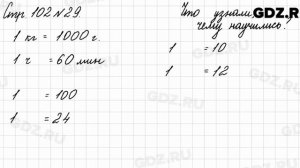 Стр 102 № 29.
1 кг = 1000 г.
1 ч = 60 мин
1 = 100
1 = 24
Что узнали,
чему научились?
1 = 10
1 = 12
GDZ.RU